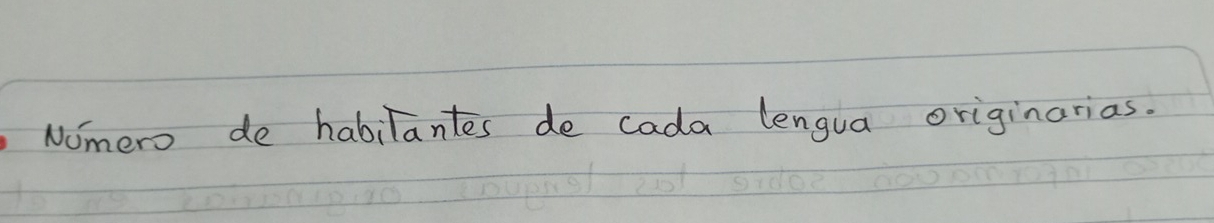 Número de habitantes de cada lengua originarias.